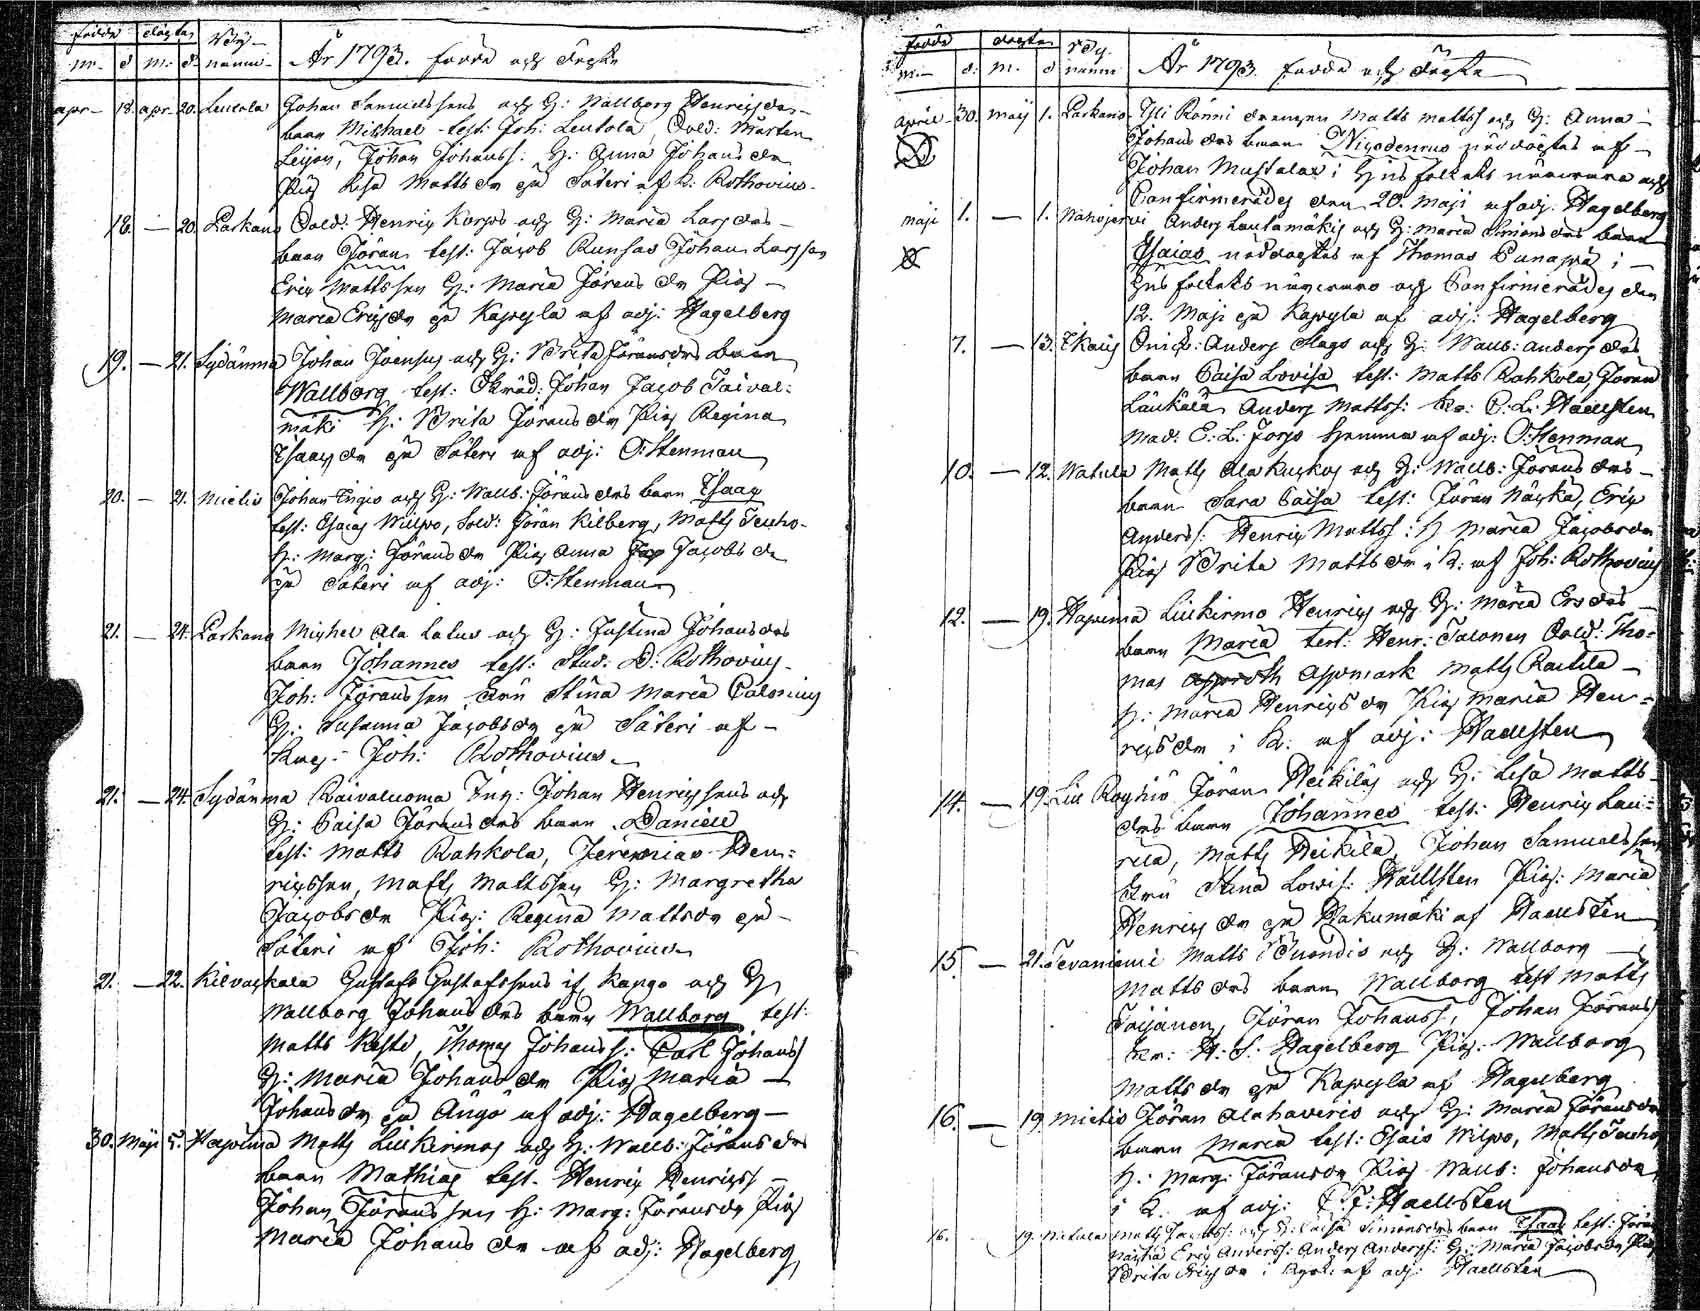 födde döpte Byß
m. d m. d. namn År 1793. födde och döpte
apr 18. apr. 20. Leutola Johan Samuelssons och H: Wallborg Henrichsdrs
barn Michael test: Joh: Leutola, Sold: Mårten
Leijon, Johan Johanss: H: Anna Johans dr
Pig Lisa Matts dr på Säteri af K: Rothovius
18. — 20. Parkano Sold: Henric Korps och H: Maria Lars drs
barn Jöran test: Jacob Runsas Johan Larsson
Eric Mattsson H: Maria Jörans dr Pig
Maria Erics dr på Kapeyla af adj: Hagelberg
19. — 21. Sydänma Johan Joensuu och H: Brita Jöransdrs barn
Wallborg test: Skräd: Johan Jacob Taival:
mäki H: Brita Jörans dr Pig Regina
Isaacs dr på Säteri af adj: O: Stenman
20. — 21. Mielis Johan och H: Wallb: Jörans drs barn Isaac
test: Esaias Wilpo, Sold: Jöran Kilberg, Matts Teuho
H: Marg: Jörans dr Pig Anna Jacobs dr
på Säteri af adj: O: Stenman
21. — 24. Parkano Michel Ala Lalus och H: Justina Johans drs
barn Johannes test: Stud: D: Rothovius
Joh: Jöransson Frü Stina Maria Palonius
H: Susanna Jacobs dr på Säteri af
Joh: Rothovius
21. — 24. Sydänma Raivaluoma Inh: Johan Henrichssons och
H: Caisa Jörans drs barn Daniel
test: Matts Rahkola, Jeremias Hen:
ricsson, Matts Mattsson H: Margretha
Jacobs dr Pig: Regina Matts dr på
Säteri af Joh: Rothovius
21. — 22. Kilvaskala Gustaf Gustafssons if Kango och H
Wallborg Johans drs barn Wallborg test:
Matts Kesti, Thomas Johanss: Carl Johanss
H: Maria Johans dr Pig Maria
Johans dr på Ängö af adj: Hagelberg
30. Maji 5. Hapoima Matts Liukirmas och H: Wallb: Jörans drs
barn Mathias test. Henric Henricss
Johan Jöransson H: Marg: Jöransdr Pig
Maria Johans dr af adj: Hagelberg
födde döpte Byß
m. d. m. d namn År 1793. födde och döpte
April 30. Maij 1. Parkano Yli Rönni drengen Matts Matts: och H: Anna
Johans drs barn Nicodemus nöddöptes af
Johan Mustalax i Gudsfolkets närvaro och
Confirmerades den 20. Maji af adj. Hagelberg
Maji 1. — 1. Nahojärvi Anders Lautamäkis och H: Maria Simons drs barn
Esaias nöddöptes af Thomas Punapä i
Guds folkets närvaro och Confirmerades den
12. Maji på Kapeyla af adj: Hagelberg
7. — 13. Ikalis Snick: Anders Slags och H: Wallb: Anders drs
barn Caisa Lovisa test: Matts Rahkola, Jöran
Läukälä Anders Mattss: Fr: C: L: Haellsten
Mad: E: L: Forss Hemma af adj: O: Stenman
10. — 12. Watula Matts Ala Kuskus och H: Wallb: Jörans drs
barn Sara Caisa test: Jöran Näckä, Eric
Anderss: Henric Mattss: H Maria Jacobsdr
Pig Brita Matts dr i K: af Joh: Rothovius
12. — 19. Hapoima Liukirmo Henrics och H: Maria Ers drs
barn Maria test: Henr: Talonen Sold: Tho:
mas Appmark Matts Rautila
H: Maria Henrics dr Pig Maria Hen:
rics dr i K: af adj: Haellsten
14. — 19. Liu Röyhiö Jöran Heikiläs och H: Lisa Matts
drs barn Johannes test: Henric Lau:
rila, Matts Heikilä, Johan Samuelsson
Frü Stina Lowis: Haellsten Pig: Maria
Henrics dr på Hakumäki af Haellsten
15. — 21. Tevaniemi Matts Suondis och H: Wallborg
Matts drs barn Wallborg test Matts
Jöran Johanss, Johan Jöranss
Fr: H: S: Hagelberg Pig: Wallborg
Matts dr på Kapeyla af Hagelberg
16. — 19. Mielis Jöran Alahaveris och H: Maria Jöransdrs
barn Maria test: Esais Wilpo, Matts Teuho
H: Marg: Jöransdr Pig Wallb: Johansdr
i K. af adj: C: F: Haellsten
16. 19. Watula Matts Jacobss: och H: Caisa Simonsdrs barn Isaac test: Jöran
Näckä Eric Anderss: Anders Anderss: H: Maria Jacobsdr Pig
Brita Erics dr i Kyrk: af adj: Haellsten